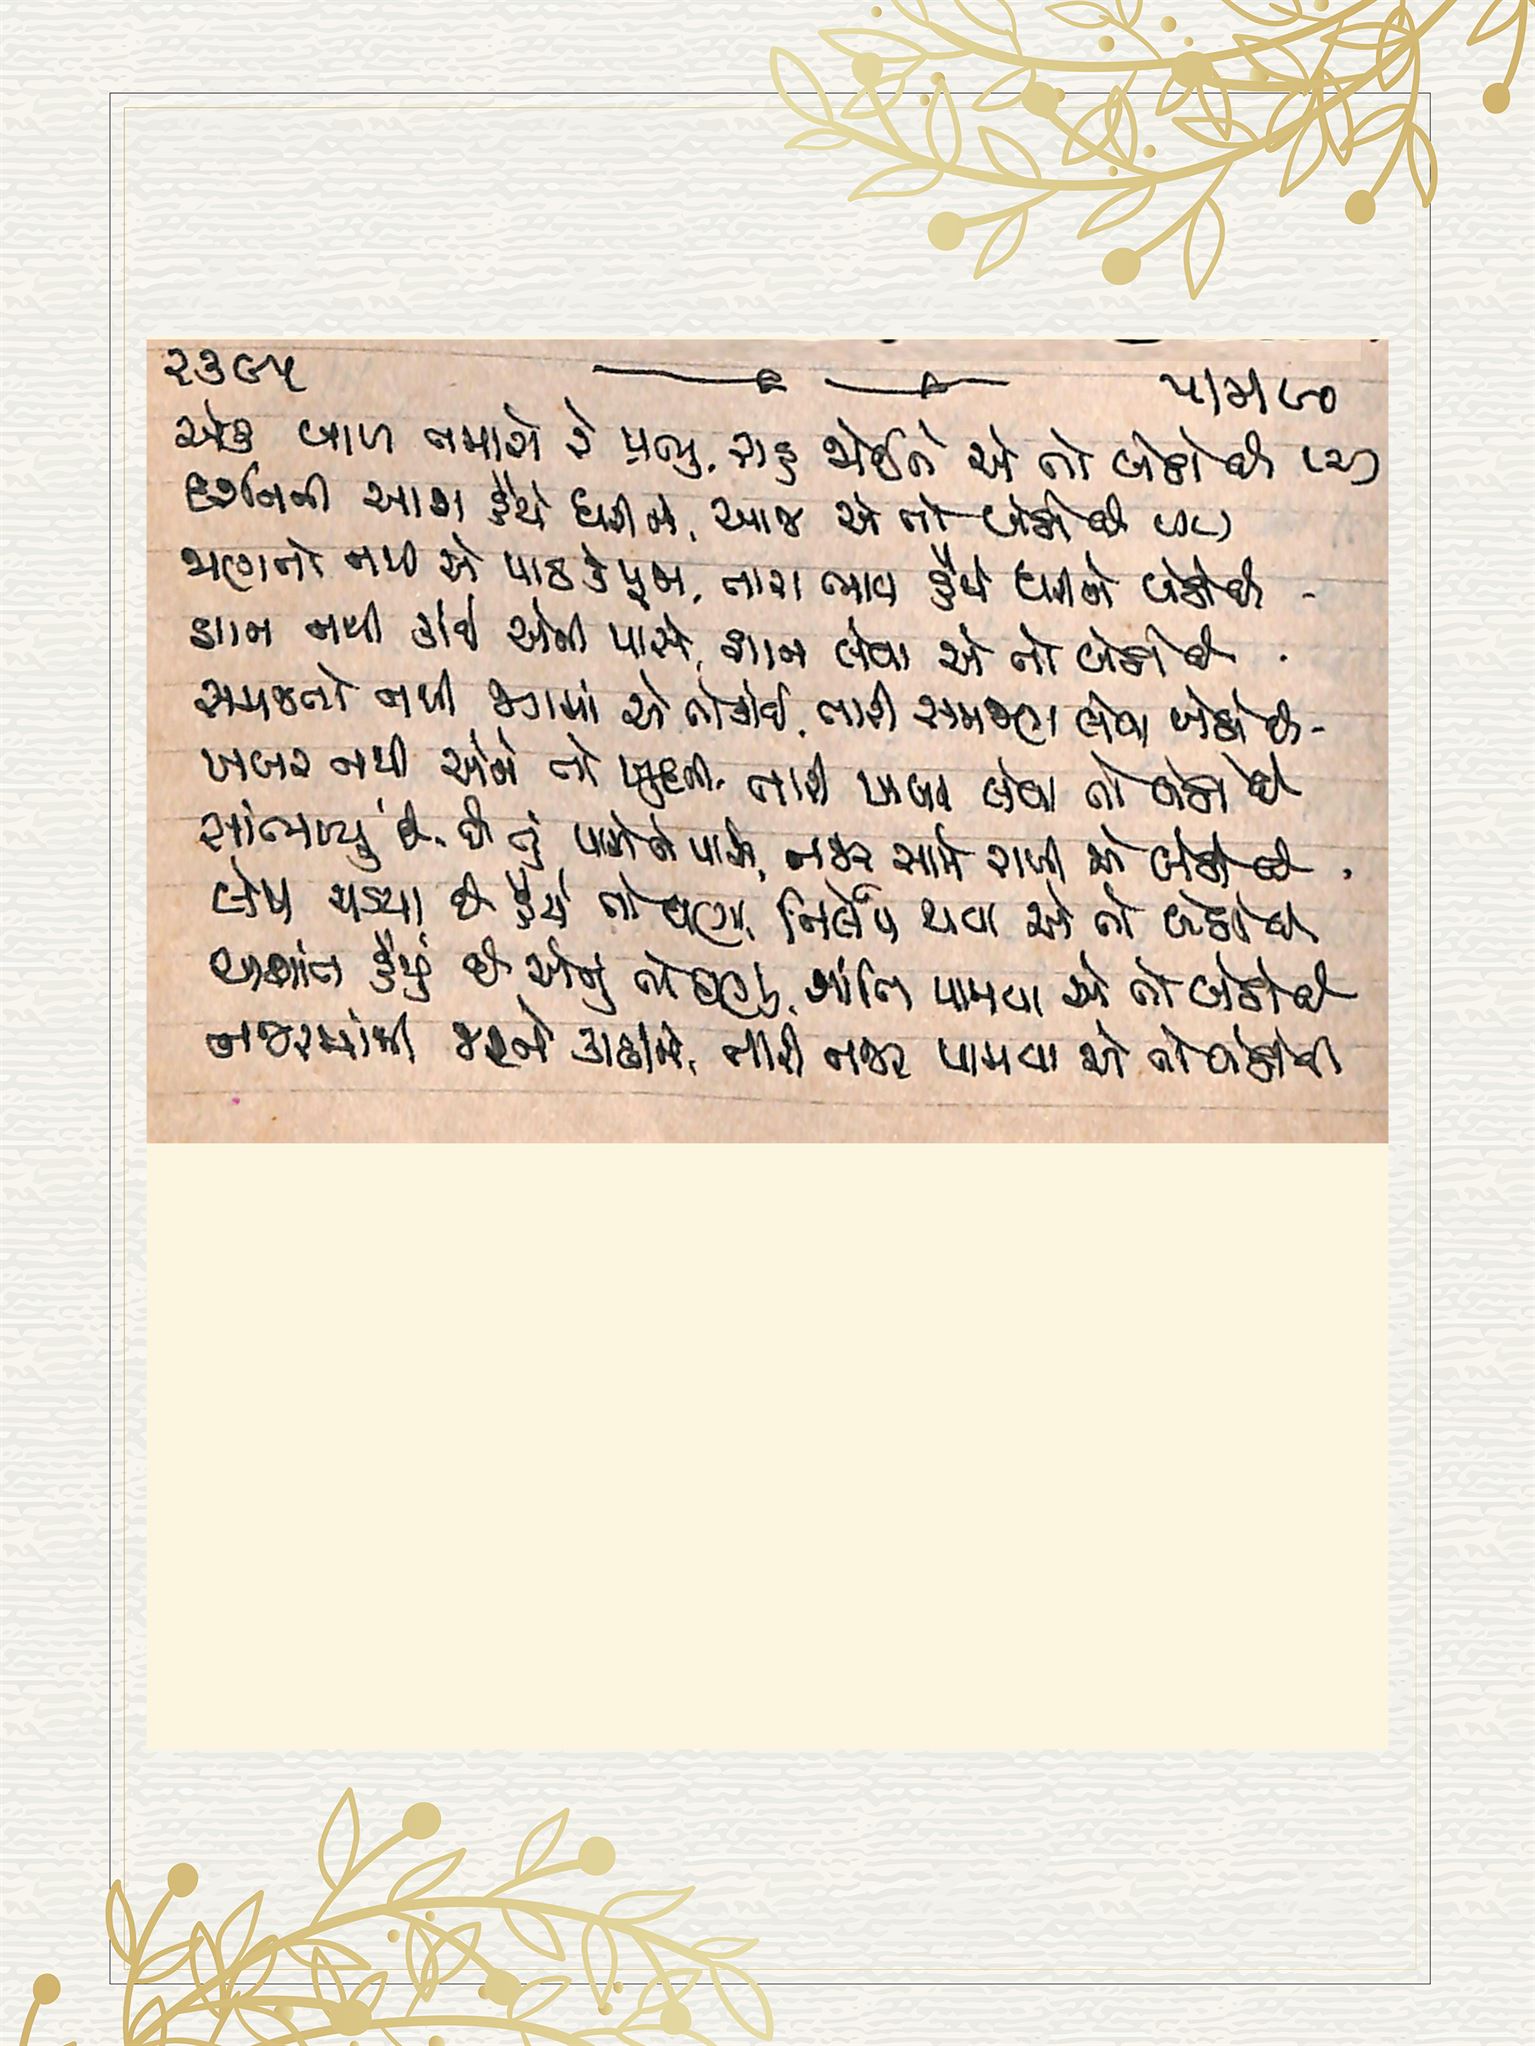 ૨૩૯૫ ૫/૩/૯૦
એક બાળ તમારો રે પ્રભુ, રાહ જોઈને એ તો બેઠો છે (૨)
દર્શનની આશ હૈયે ધરીને, આજ એ તો બેઠો છે
જાણતો નથી એ પાઠ કે પૂજા, તારા ભાવ હૈયે ધરીને બેઠો છે -
જ્ઞાન નથી કાંઈ એની પાસે, જ્ઞાન લેવા એ તો બેઠો છે .
સમજતો નથી જગમાં એ તો કાંઈ, તારી સમજણ લેવા બેઠો છે -
ખબર નથી એને તો ખુદની, તારી ખબર લેવા તો બેઠો છે
સાંભળ્યું છે, છે તું પાસે ને પાસે, નજર સામે રાખી એ બેઠો છે .
લેપ ચડયા છે હૈયે તો ઘણા, નિર્લેપ થવા એ તો બેઠો છે
અશાંત હૈયું છે એનું તો ઘણું, શાંતિ પામવા એ તો બેઠો છે
નજરમાંથી જગને કાઢીને, તારી નજર પામવા એ તો બેઠો છે